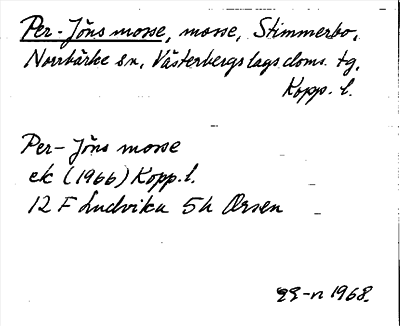 Per-Jöns mosse, mosse, Stimmerbo,
Norrbärke sn, Västerbergslags doms. tg,
Kopp. l.
Per-Jöns mosse
ek (1966) Kopp. l.
12 F Ludvika 5h Orsen
1968.